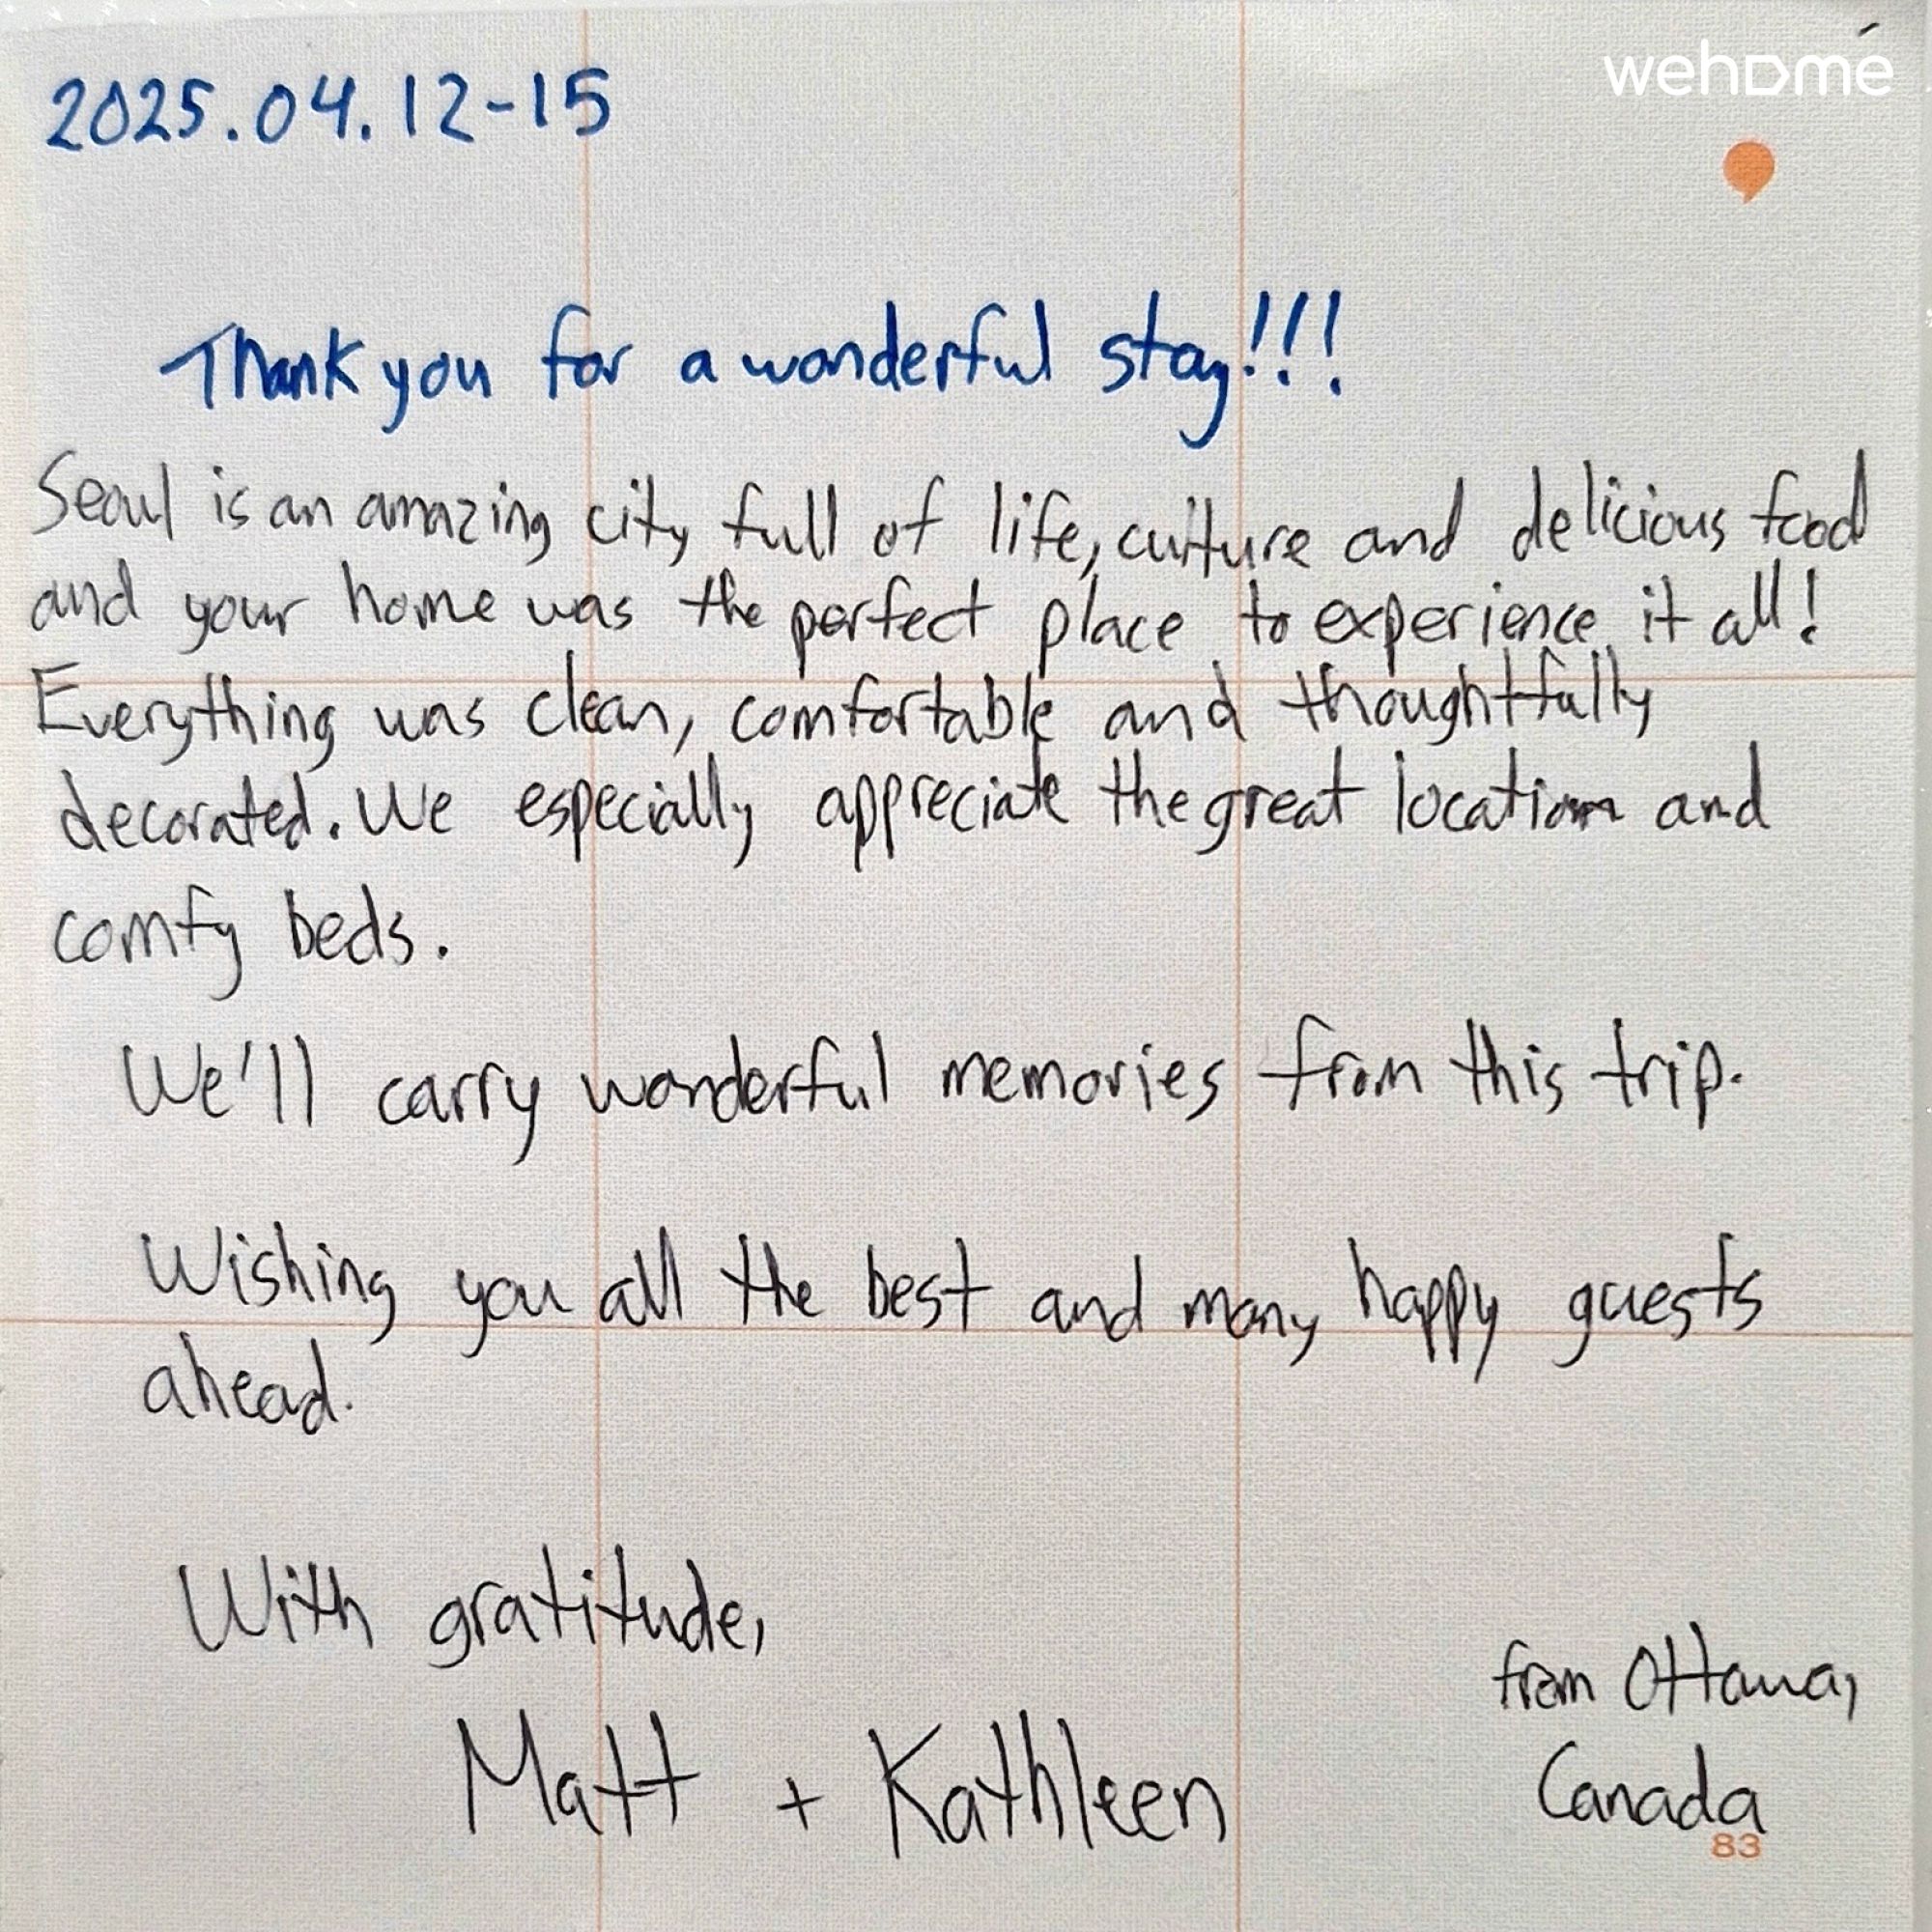 wehome
2025.04.12-15
Thank you for a wonderful stay!!!
Seoul is an amazing city full of life, culture and delicious food
and your home was the perfect place to experience it all!
Everything was clean, comfortable and thoughtfully
decorated. We especially appreciate the great location and
comfy beds.
We'll carry wonderful memories from this trip.
Wishing you all the best and many happy guests
ahead.
With gratitude,
Matt + Kathleen
from Ottawa,
Canada
83